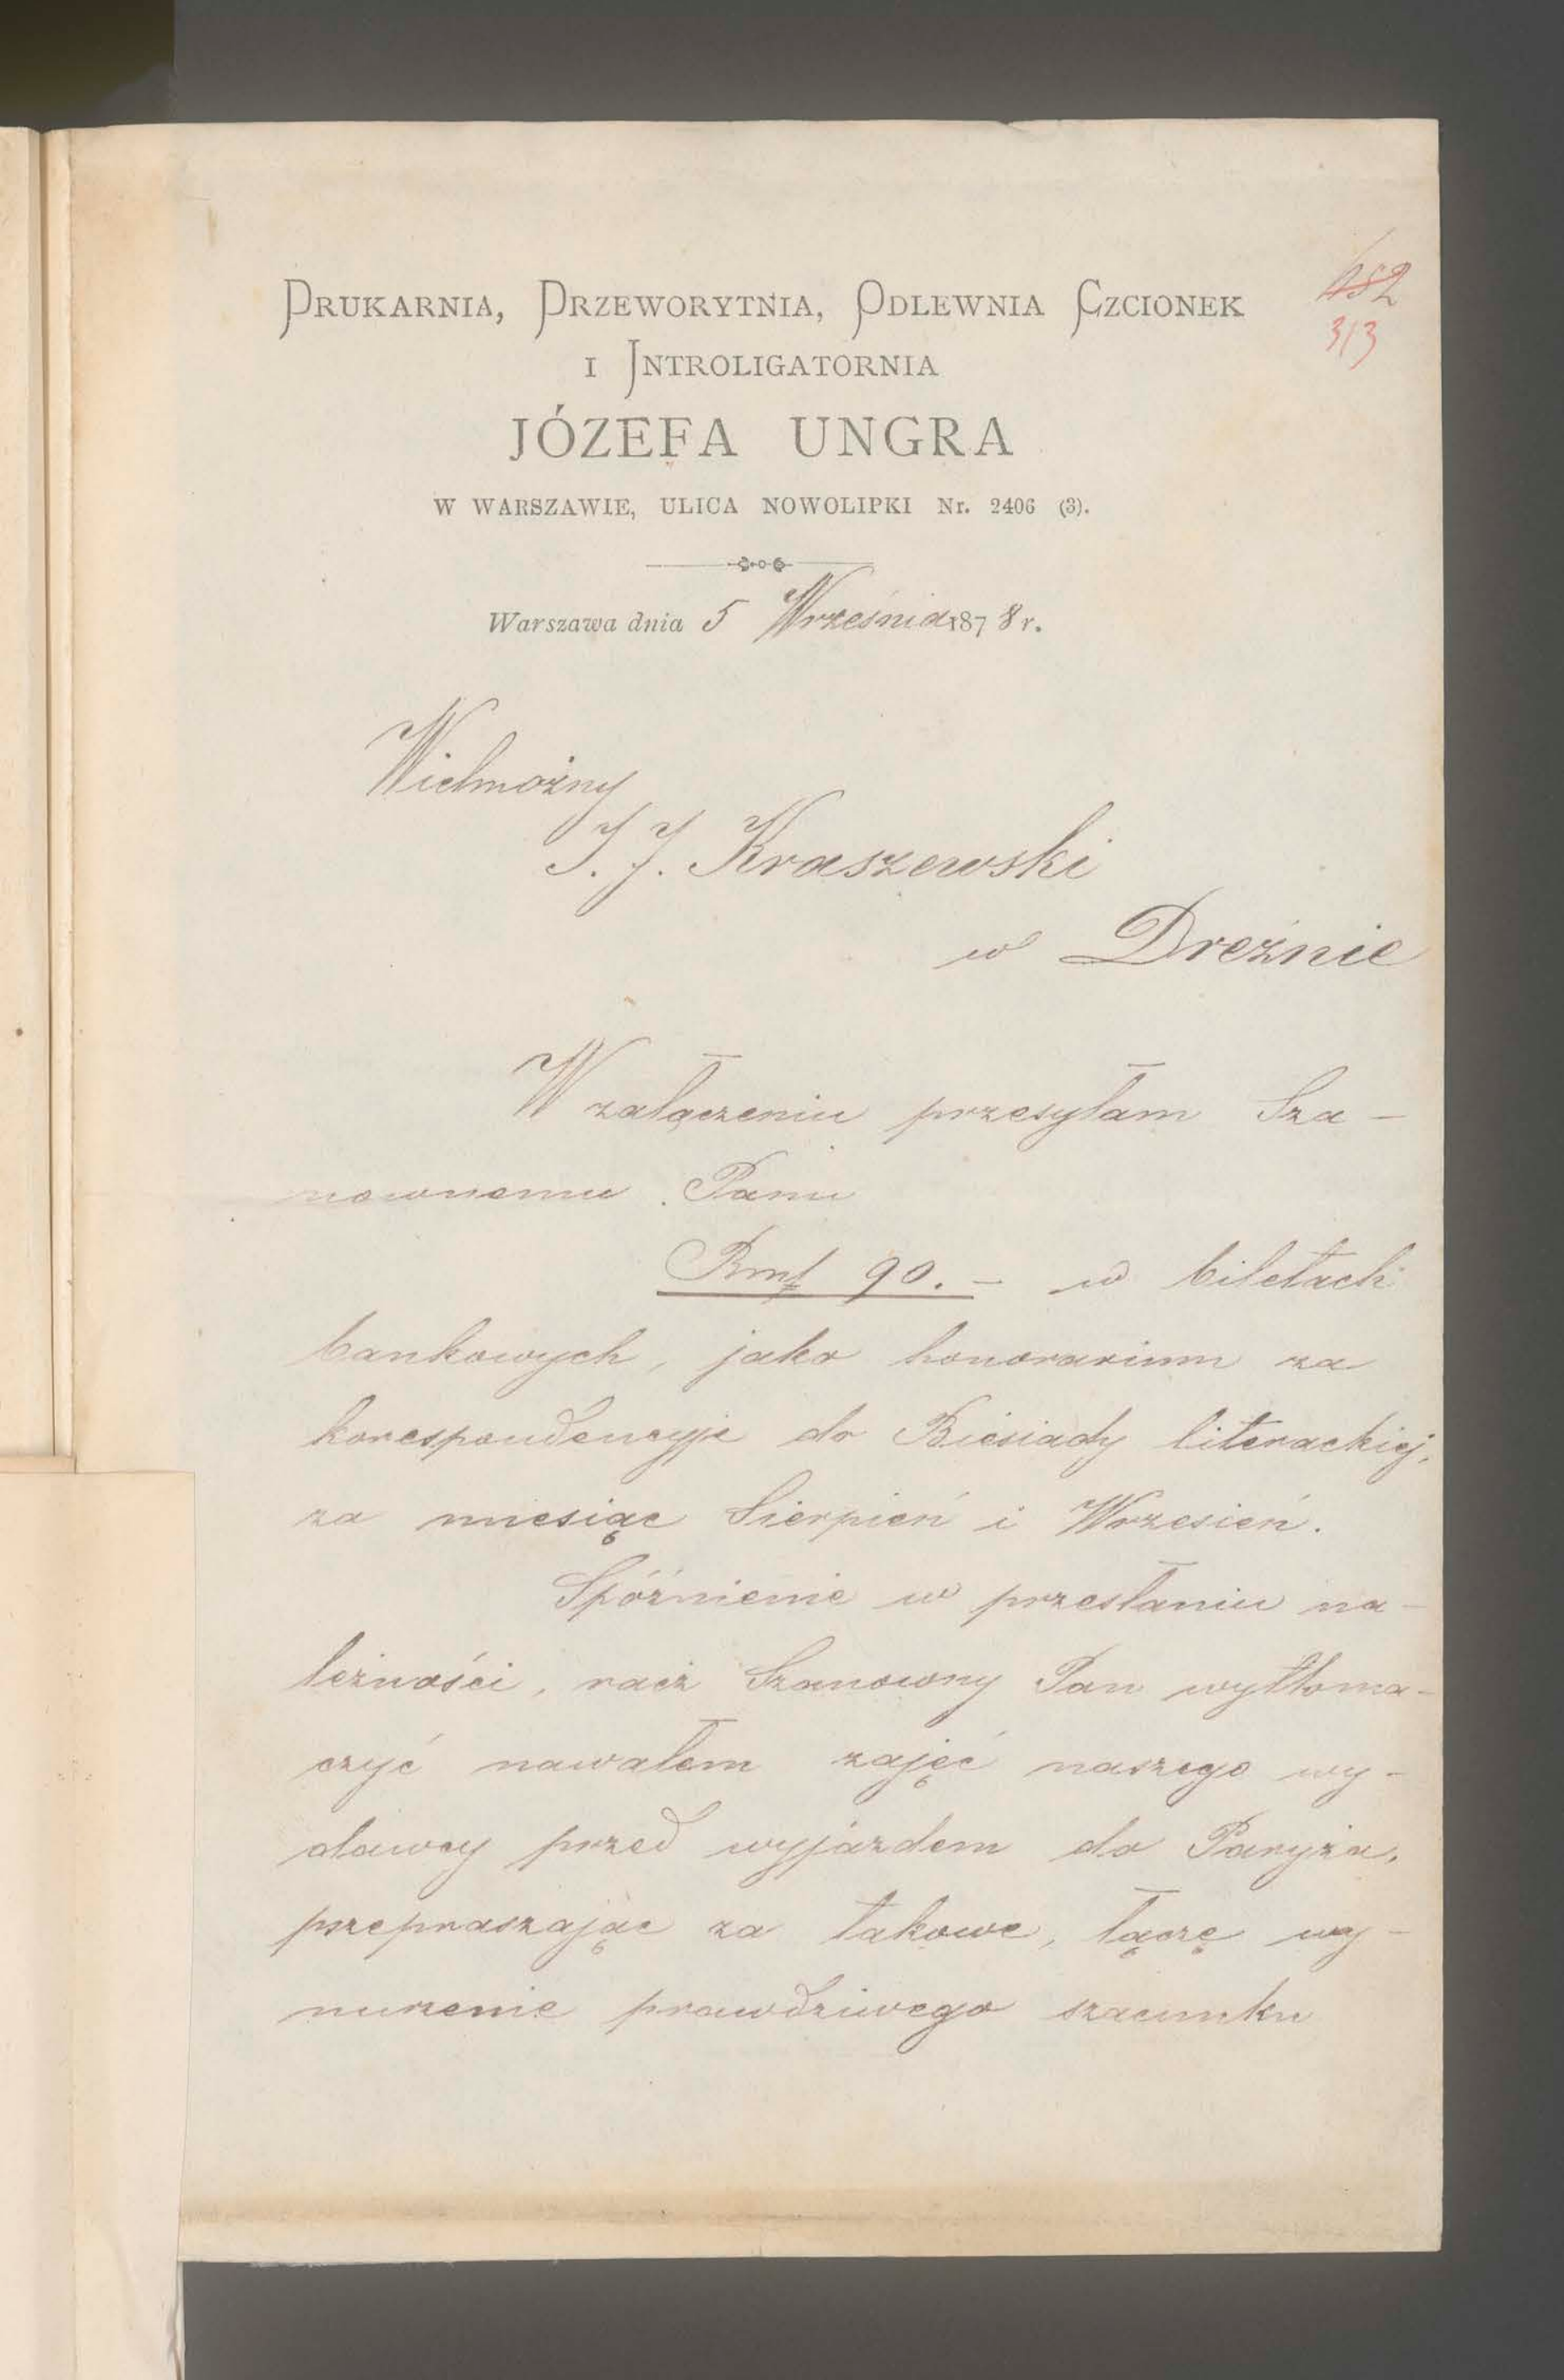 PRUKARNIA, PRZEWORYTNIA, ODLEWNIA CZCIONEK
I INTROLIGATORNIA
JÓZEFA UNGRA
W WARSZAWIE, ULICA NOWOLIPKI Nr. 2406 (3).
Warszawa dnia 5 Września 1878 r.
452
313
Wielmożny
J. J. Kraszewski
w Dreźnie
W załączeniu przesyłam Sza-
nownemu Panu
Rmf 90. - w biletach
bankowych, jako honorarium za
korespondencyje do Biesiady literackiej,
za miesiąc Sierpień i Wrzesień.
Spóźnienie w przesłaniu na-
leżności, racz Szanowny Pan wytłoma-
czyć nawałem zajęć naszego wy-
dawcy przed wyjazdem do Paryża,
przepraszając za takowe, łączę wy-
nurzenie prawdziwego szacunku